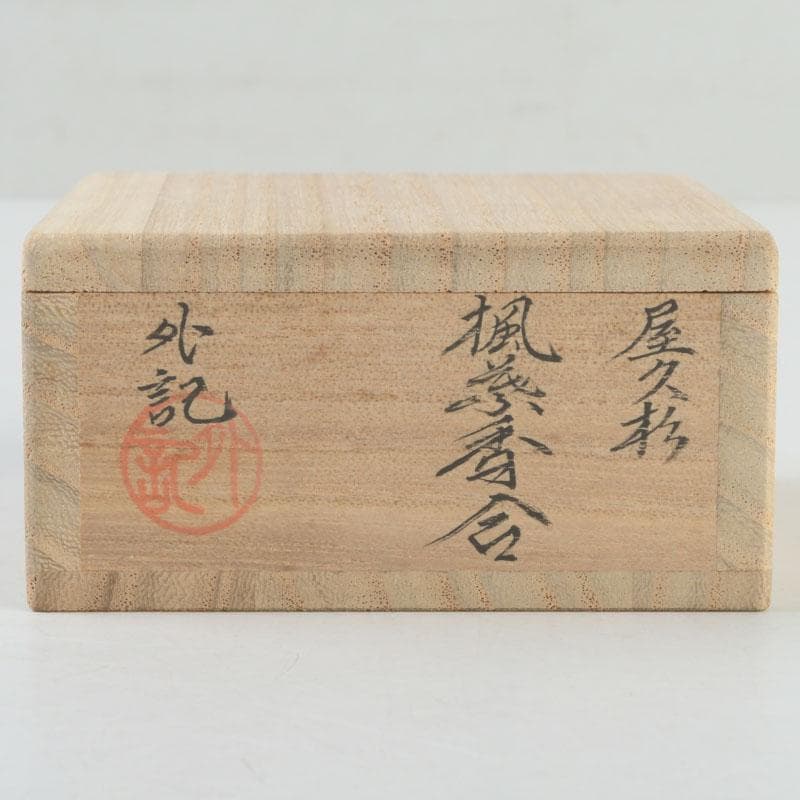 屋久杉
楓葉香合
外記
外記